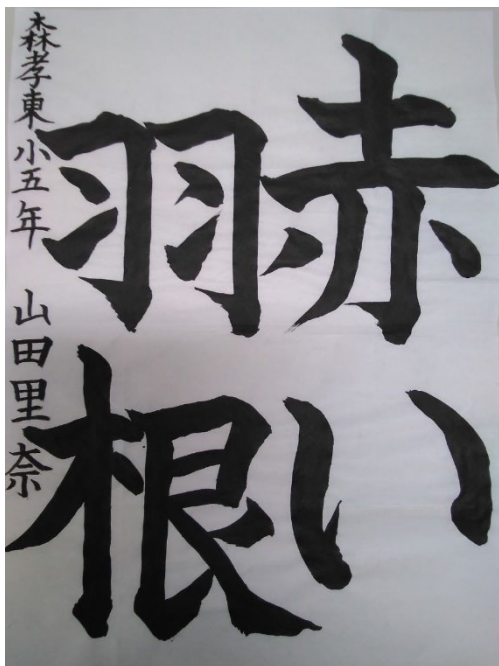 赤い
羽根
森孝東小五年 山田里奈